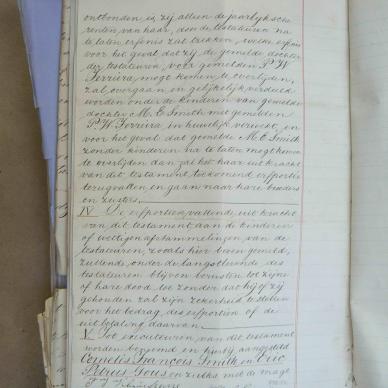 ontbonden is, zij alleen de jaarlijksche
renten van haar, door de testateuren na
te laten erfenis zal trekken, welke erfenis
voor het geval dat zij, de gemelde dochter
der testateuren, voor gemelden P. W.
Ferreira, mogt komen te overlijden,
zal overgaan en gelijkelijk verdeeld
worden onder de kinderen van gemelde
dochter M. E. Smith met gemelden
P. W. Ferreira in huwelijk verwekt, en
voor het geval dat gemelde M. E. Smith
zonder kinderen na te laten mogt komen
te overlijden dan zal het haar uit kracht
van dit testament toekomend erfportie
terugvallen en gaan naar hare broeders
en zusters.
IV De erfportien, vallende uit kracht
van dit testament aan de kinderen
of wettige afstammelingen van de
testateuren, zooals hier boven gemeld,
zullende, onder de langstlevende des
testateuren blijven berusten tot zijne
of hare dood, toe zonder dat hij of zij
gehouden zal zijn zekerheid te stellen
voor het bedrag des erfportien of de
uitbetaling daarvan.
V Tot executeuren van dit testament
worden benoemd en hierbij aangesteld
Cornelis Francois Smith en Eric
Petrus Gous en zulks met de mage